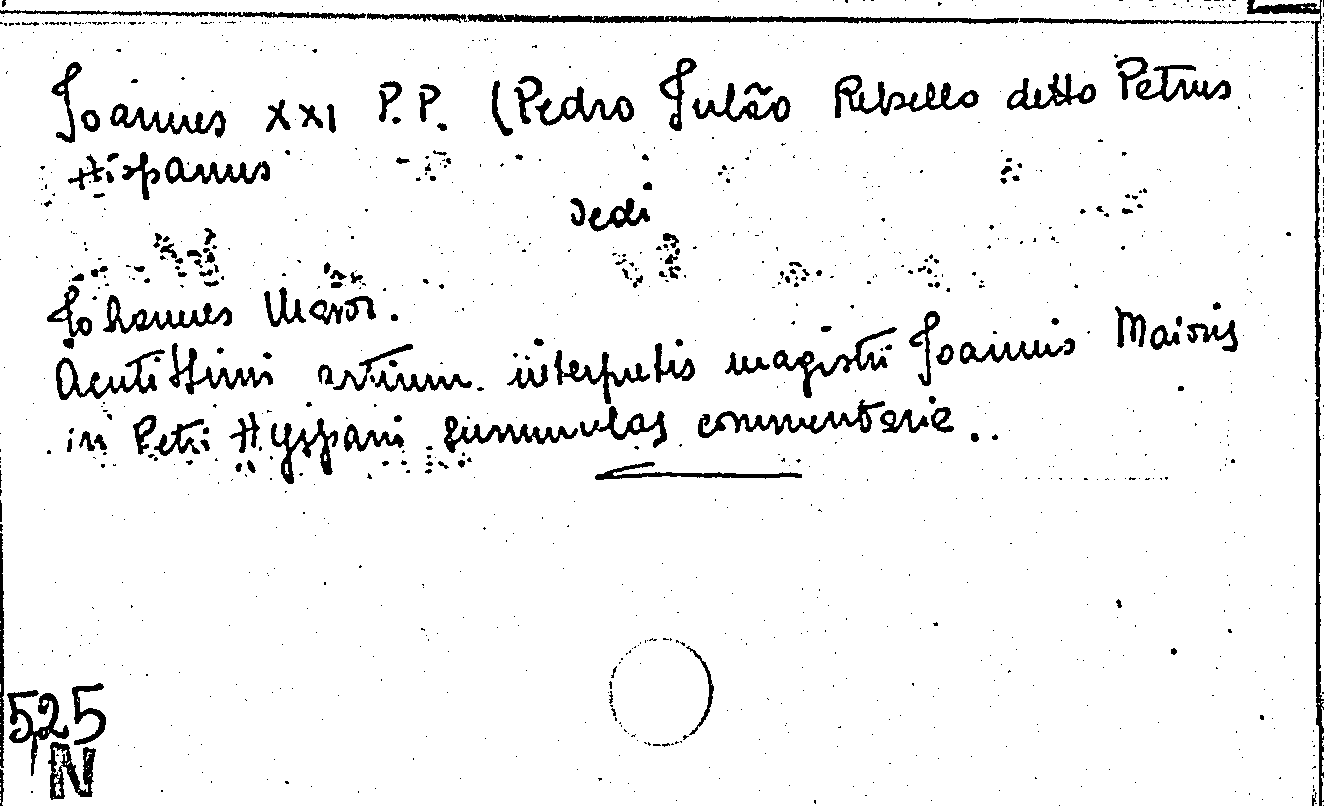 Joannes XXI P.P. (Pedro Julão Rebello detto Petrus
Hispanus
vedi
Johannes Maior.
Acutissimi artium interpretis magistri Joannis Maioris
in Petri Hyspani summulas commentaria.
525
N